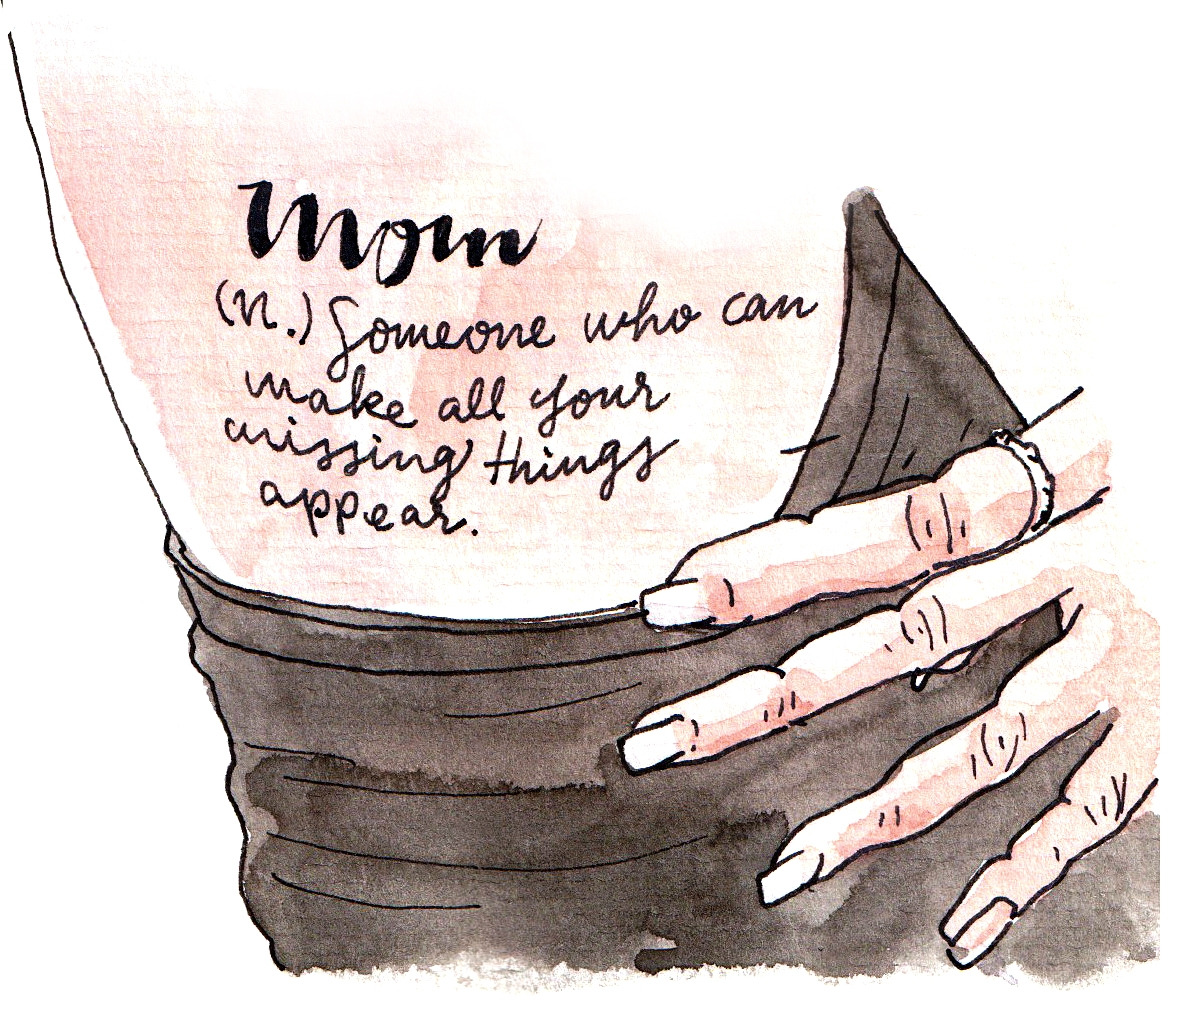 Mom
(n.) Someone who can
make all your
missing things
appear.